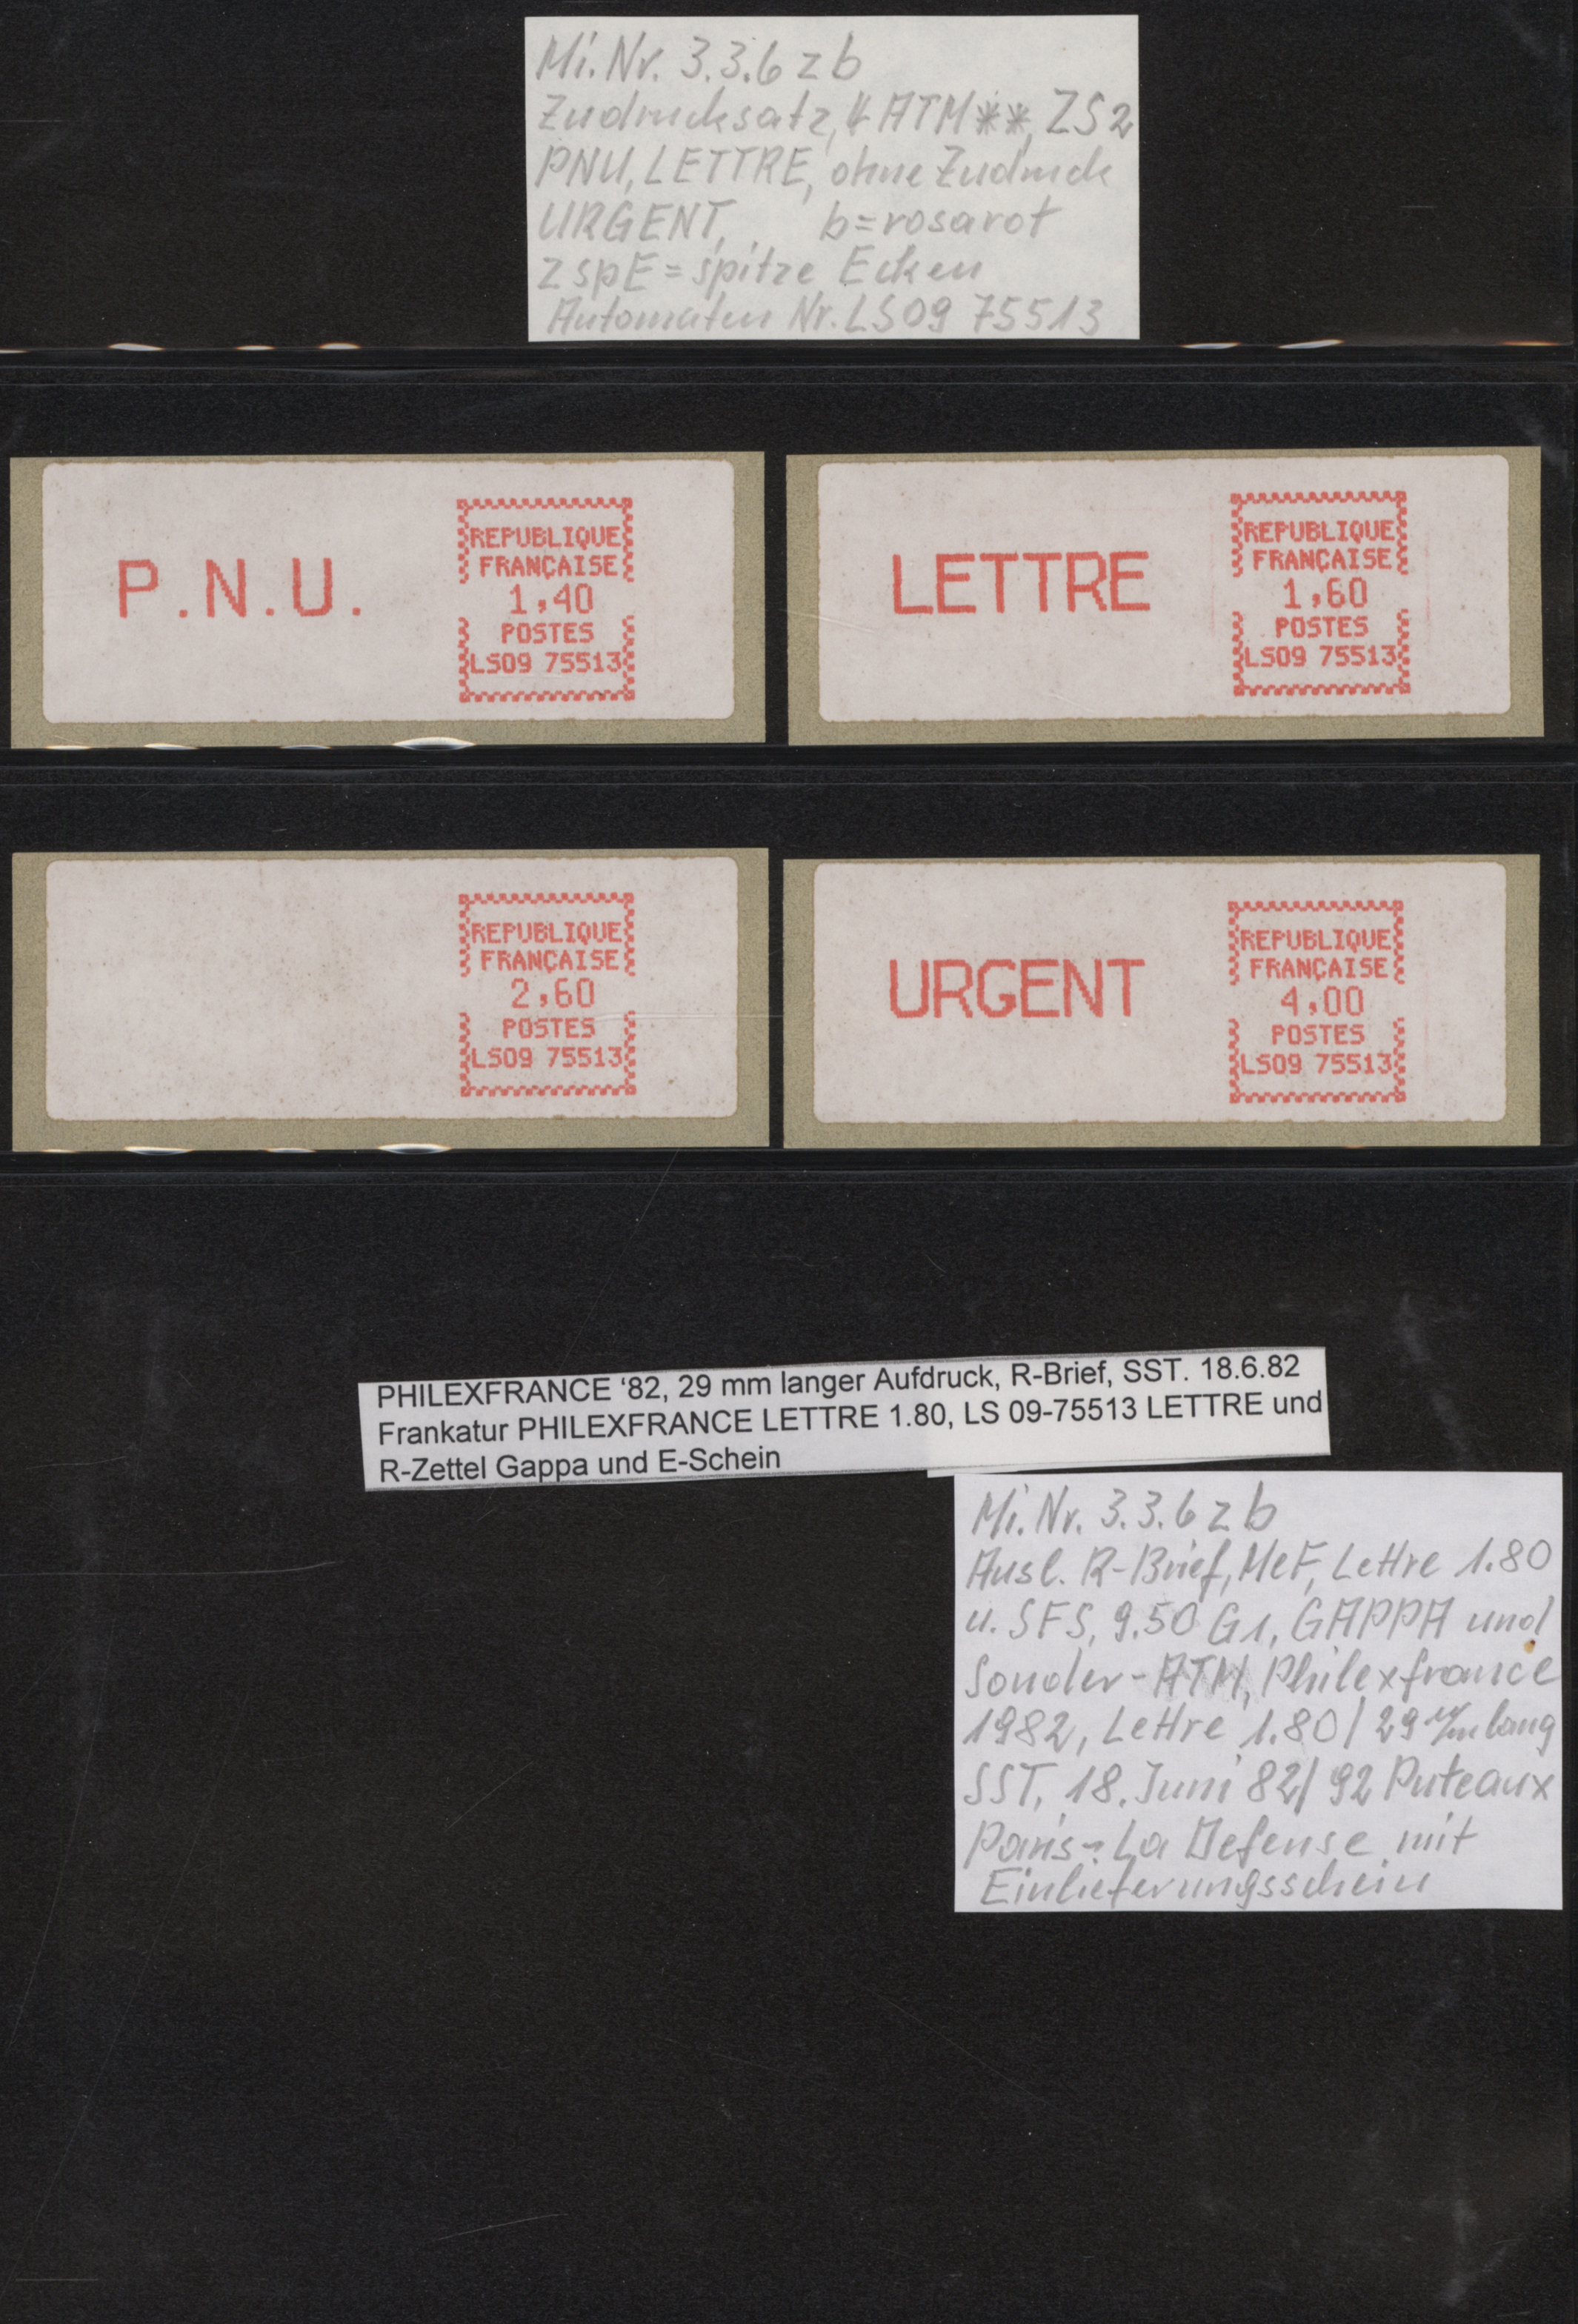 Mi.Nr. 3.3.6 z b
Zudrucksatz, 4 ATM **, ZS 2
PNU, LETTRE, ohne Zudruck
URGENT, b=rosarot
z spE = spitze Ecken
Automaten Nr. LS09 75513
P.N.U.
REPUBLIQUE
FRANÇAISE
1,40
POSTES
LS09 75513
LETTRE
REPUBLIQUE
FRANÇAISE
1,60
POSTES
LS09 75513
REPUBLIQUE
FRANÇAISE
2,60
POSTES
LS09 75513
URGENT
REPUBLIQUE
FRANÇAISE
4,00
POSTES
LS09 75513
PHILEXFRANCE ‘82, 29 mm langer Aufdruck, R-Brief, SST. 18.6.82
Frankatur PHILEXFRANCE LETTRE 1.80, LS 09-75513 LETTRE und
R-Zettel Gappa und E-Schein
Mi. Nr. 3.3.6 z b
Ausl. R-Brief, MeF, Lettre 1.80
u. SFS, 9.50 G1, GAPPA und
Sonder-ATM, Philexfrance
1982, Lettre 1.80 / 29 m/m lang
SST, 18. Juni 82 / 92 Puteaux
Paris-La Defense mit
Einlieferungsschein